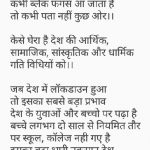 कभी ब्लैक फंगस आ जाता है
तो कभी पता नहीं कुछ और।।
कैसे घेरा है देश की आर्थिक,
सामाजिक, सांस्कृतिक और धार्मिक
गति विधियों को।।
जब देश में लॉकडाउन हुआ
तो इसका सबसे बड़ा प्रभाव
देश के युवाओं और बच्चो पर पढ़ा है
बच्चे लगभग दो साल से नियमित तौर
पर स्कूल, कॉलेज नही गए है